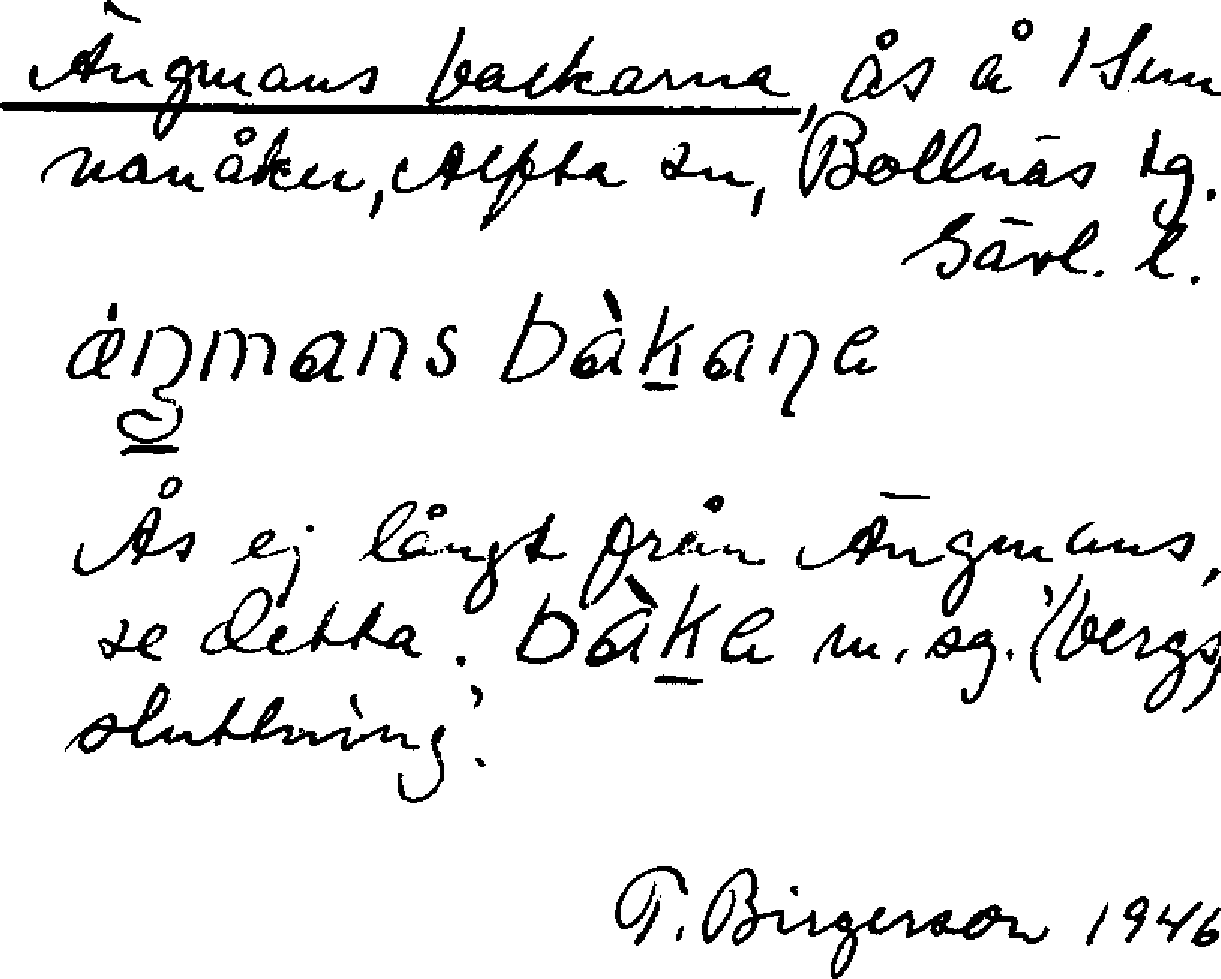 Ängmans backarna, ås å 1 Sun
nanåker, Alfta sn, Bollnäs tg.
Gävl. l.
áŋmans bàkaɳa
Ås ej långt från Ängmans,
se detta. bàka m. sg. '(bergs)
sluttning'.
T. Birgerson 1946